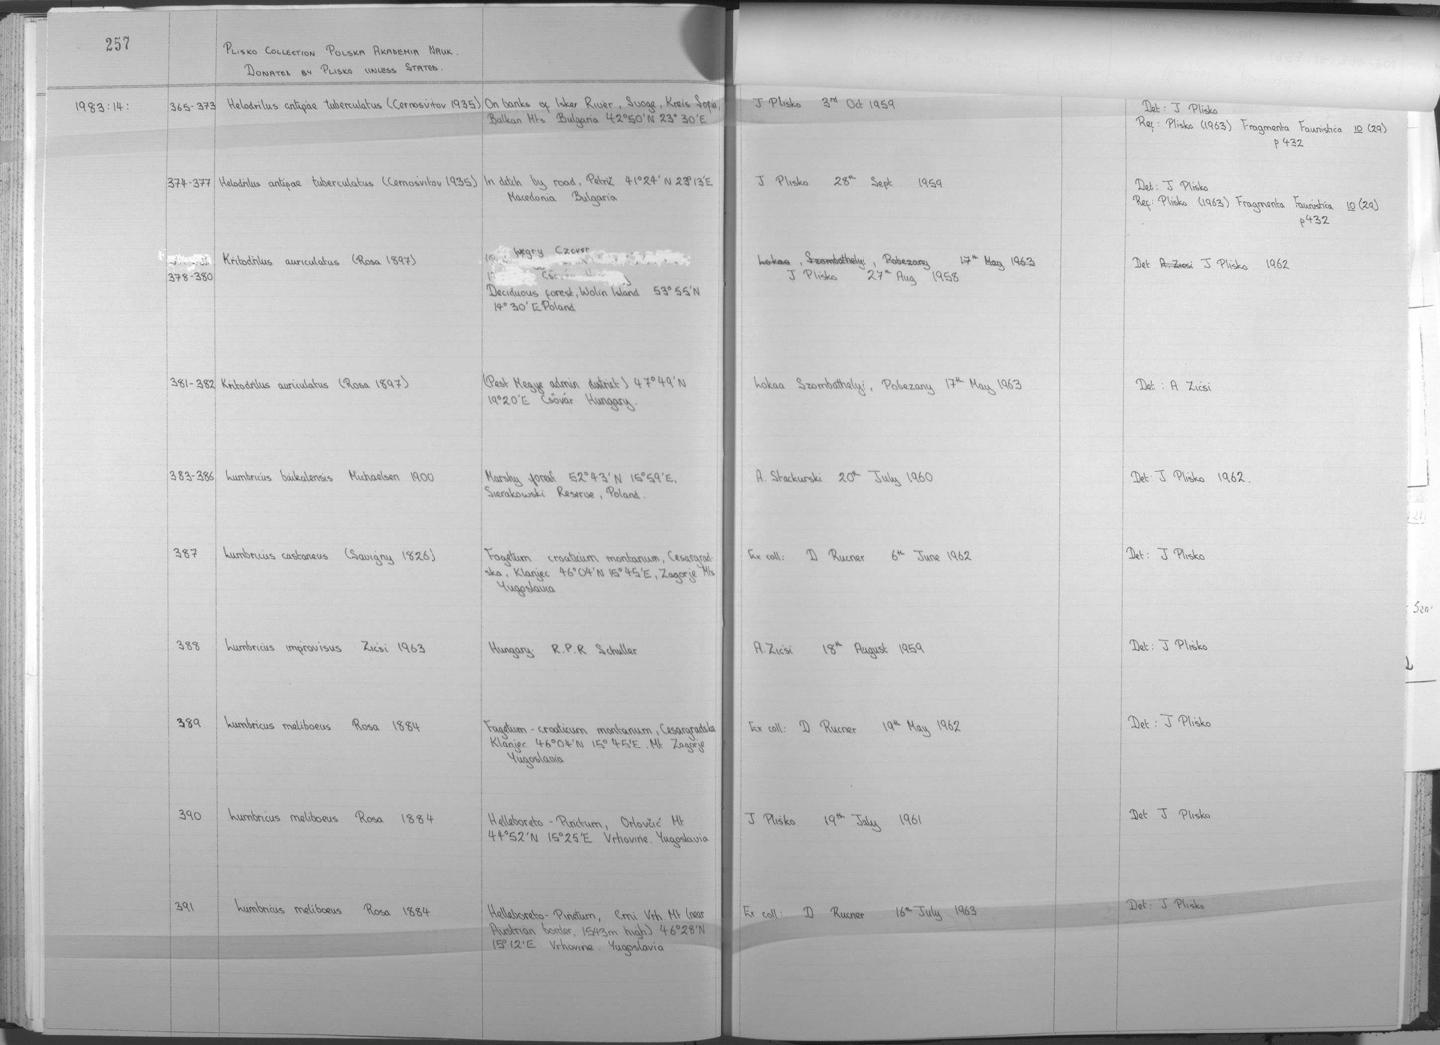 257
PLISKO COLLECTION POLSKA AKADEMIA NAUK.
DONATED BY PLISKO UNLESS STATED.
1983:14: 365-373 Helodrilus antipae tuberculatus (Cernosvitov 1935) On banks of Isker River, Svoge, Kreis Sofia, J Plisko 3rd Oct 1959 Det: J Plisko
Balkan Mts Bulgaria 42°50'N 23°30'E Ref: Plisko (1963) Fragmenta Faunistica 10 (29)
p432
374-377 Helodrilus antipae tuberculatus (Cernosvitov 1935) In ditch by road, Petrič 41°24'N 23°13'E J Plisko 28th Sept 1959 Det: J Plisko
Macedonia Bulgaria Ref: Plisko (1963) Fragmenta Faunistica 10 (29)
p432
Kritodrilus auriculatus (Rosa 1897) Wegry Czover Lokaa, Szombathelyi, Pobezany 17th May 1963 Det A. Zicsi J Plisko 1962
378-380 J Plisko 27th Aug 1958
Deciduous forest, Wolin Island 53°55'N
14°30'E Poland
381-382 Kritodrilus auriculatus (Rosa 1897) (Pest Megye admin district) 47°49'N Lokaa Szombathelyi, Pobezany 17th May 1963 Det: A Zicsi
19°20'E Csővár Hungary.
383-386 Lumbricus baikalensis Michaelsen 1900 Marshy forest 52°43'N 15°59'E, A. Stackurski 20th July 1960 Det: J Plisko 1962.
Sierakowski Reserve, Poland.
387 Lumbricus castaneus (Savigny 1826) Fagetum croaticum montanum, Cesargrad- Ex coll: D Rucner 6th June 1962 Det: J Plisko
ska, Klanjec 46°04'N 15°45'E, Zagorje Mts
Yugoslavia
388 Lumbricus improvisus Zicsi 1963 Hungary. R.P.R Schuller A. Zicsi 18th August 1959 Det: J Plisko
389 Lumbricus meliboeus Rosa 1884 Fagetum - croaticum montanum, Cesargradska Ex coll: D Rucner 19th May 1962 Det: J Plisko
Klanjec 46°04'N 15°45'E. Mt Zagorje
Yugoslavia
390 Lumbricus meliboeus Rosa 1884 Helleboreto - Pinctum, Orlovčić Mt J Plisko 19th July 1961 Det J Plisko
44°52'N 15°25'E Vrhovine. Yugoslavia
391 Lumbricus meliboeus Rosa 1884 Helleboreto - Pinctum, Crni Vrh Mt (near Ex coll: D Rucner 16th July 1963 Det: J Plisko
Austrian border, 1543m high) 46°28'N
15°12'E Vrhovine. Yugoslavia